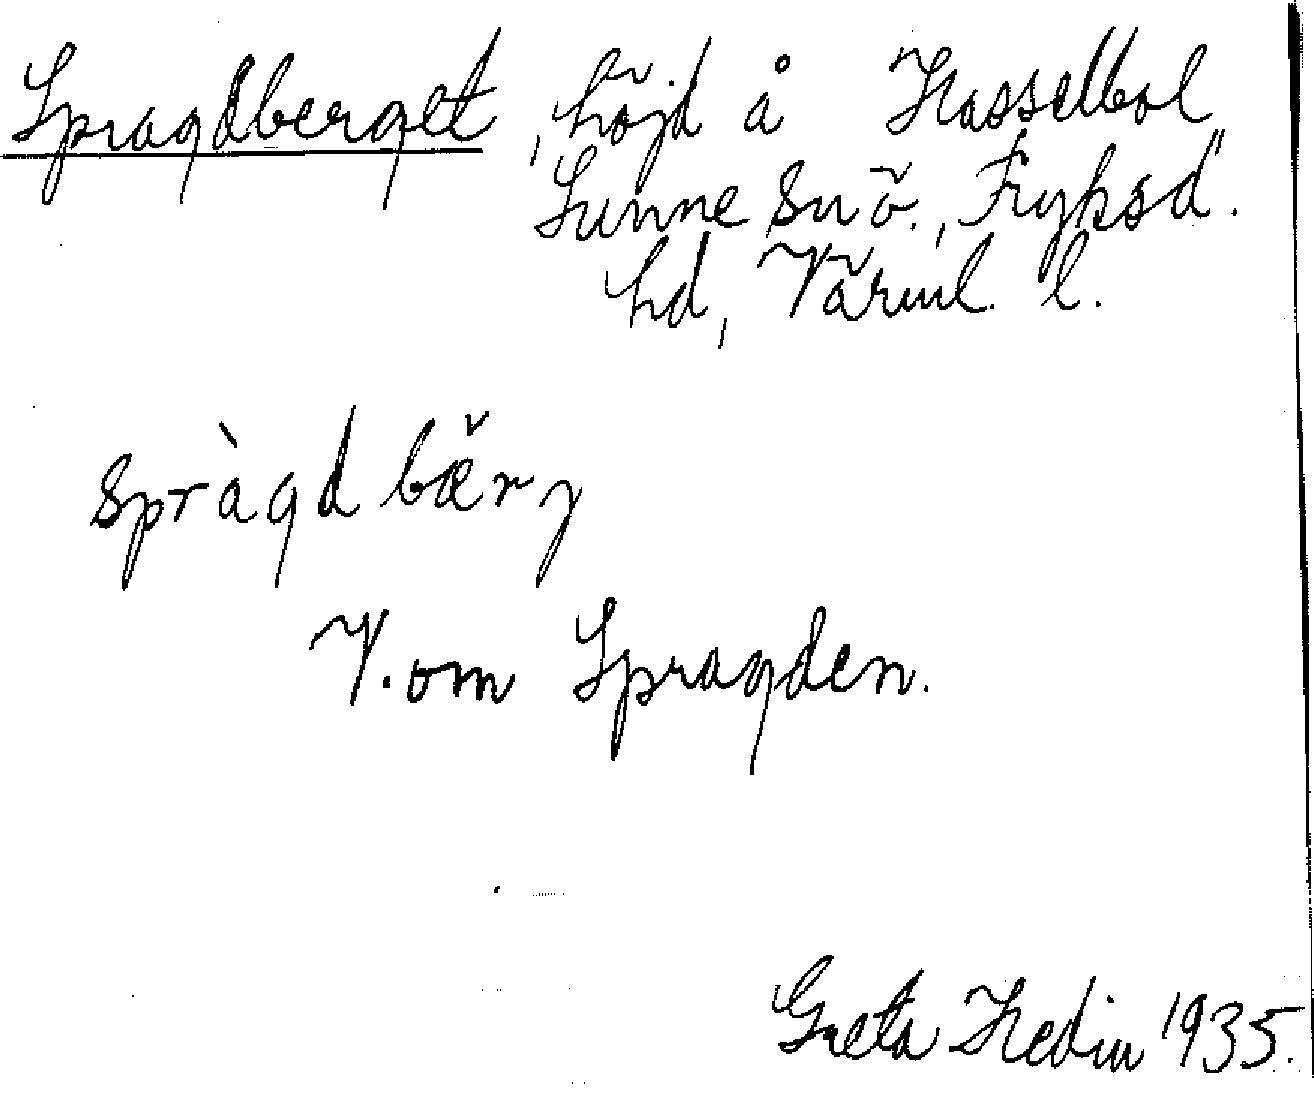 Spragdberget, höjd å Hasselbol
Sunne snö., Fryksd.
hd, Värml. l.
spràgd bæ̆rɡ
V. om Spragden.
Greta Hedin 1935.